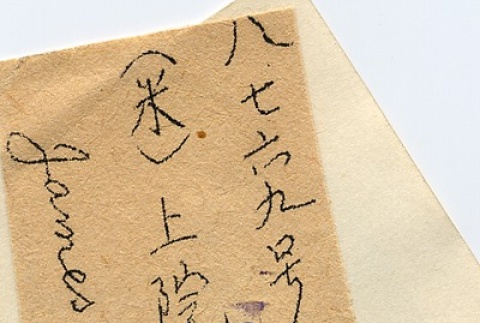 八.七六九号
(米)上院
James